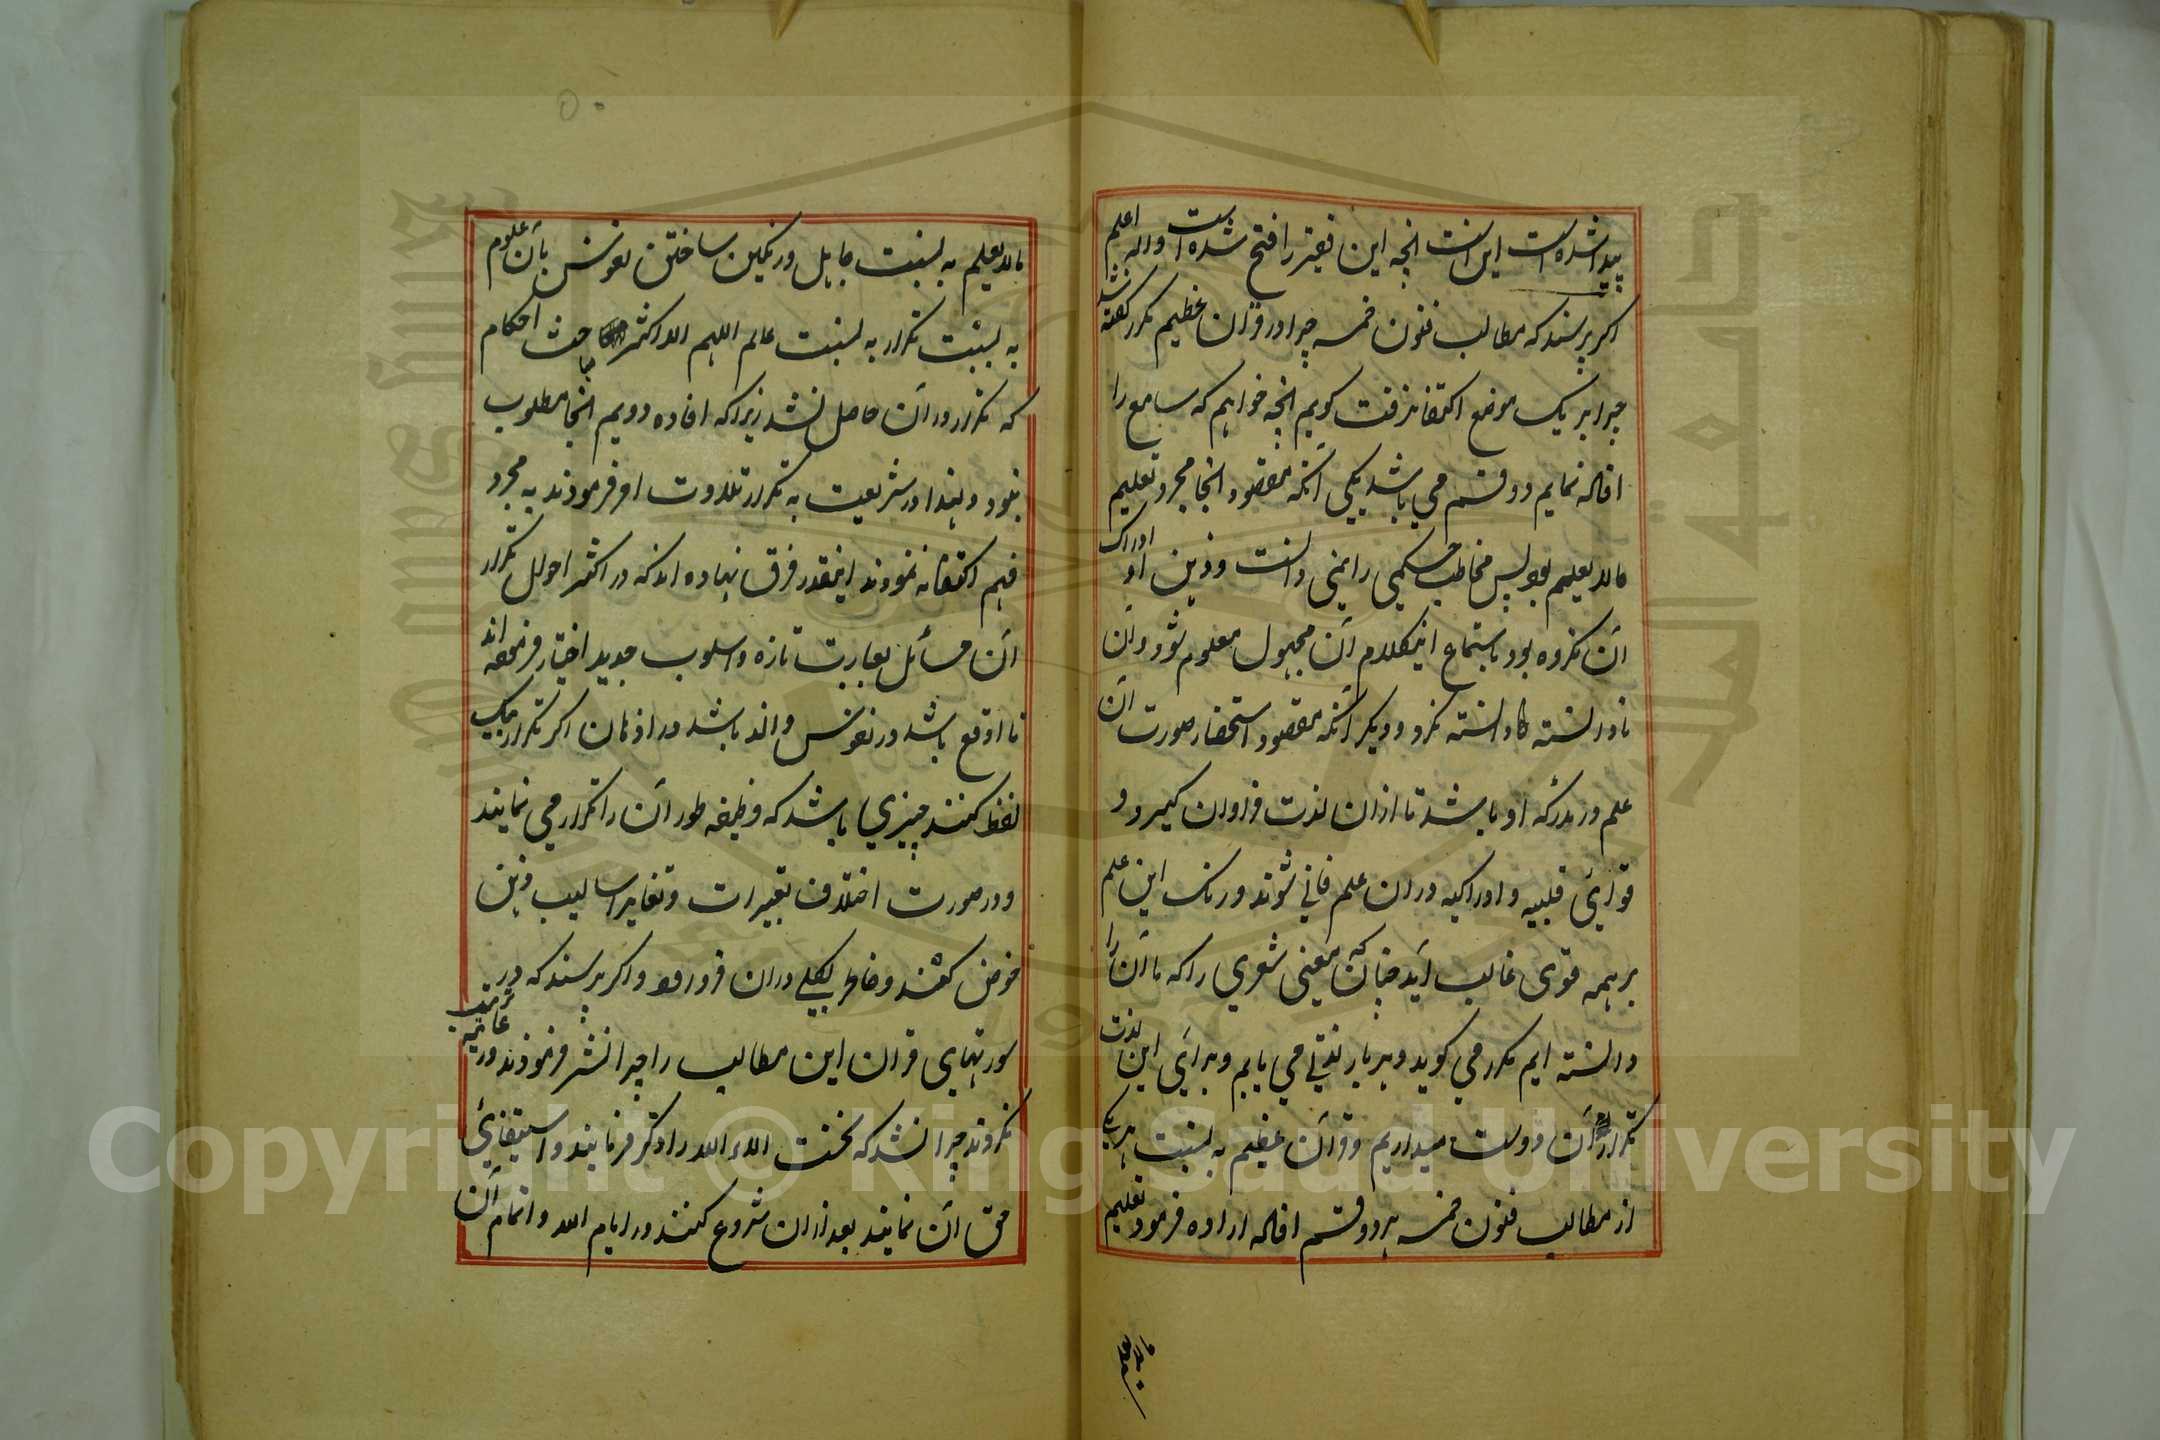 پیدا شده است این است انچه این فقیر را فتح شده است والله اعلم
اکر پرسند که مطالب فنون خمسه چرا در قران عظیم مکرر کفته شد
چرا بر یک موضع اکتفا نرفت کویم انچه خواهیم که سامع را
افاده نمایم دو قسم می باشد یکی آنکه مقصود انجا مجرد تعلیم
مالا یعلم بود پس مخاطب حکمی را نمی دانست و ذهن او ادراک
آن نکرده بود باستماع اینکلام آن مجهول معلوم شود و آن
نادانسته دانسته کردد و دیکر آنکه مقصود استحضار صورت آن
علم در مدرکه او باشد تا ازان لذت فراوان کیرد و
قوای قلبیه و ادراکیه دران علم فانی شوند و رنک این علم
بر همه قوی غالب آید چنانکه معنی شعری را که ما آن را
دانسته ایم مکرر می کوید و هر بار لذتی می یابیم و برای این لذت
تکرار آن دوست میداریم و قرآن عظیم به نسبت هر یک
از مطالب فنون خمسه هر دو قسم افاده اراده فرمود تعلیم
مالا یعلم به نسبت جاهل و رنکین ساختن نفوس بآن علوم
به نسبت تکرار به نسبت عالم اللهم الا اکثر مباحث احکام
که تکرار در آن حاصل نشد زیرا که افاده دویم انجا مطلوب
نبود و لهذا در شریعت به تکرار تلاوت امر فرمودند به مجرد
فهم اکتفا نه نمودند اینقدر فرق نهاده اند که در اکثر احوال تکرار
آن مسائل بعبارت تازه و اسلوب جدید اختیار فرموده اند
تا اوقع باشد در نفوس و الذ باشد در اذهان اکر تکرار بیک
لفظ کنند چیزی باشد که وظیفه طور آن را تکرار می نمایند
و در صورت اختلاف تعبیرات و تغایر اسالیب ذهن
خوض کند و خاطر بکلی دران فرو رود و اکر پرسند که در
سورتهای قران این مطالب را چرا نشر فرمودند و رعایت ترتیب
نکردند چرا نشد که نخست آلاء الله را ذکر فرمایند و استیفای
حق آن نمایند بعد ازان شروع کنند در ایام الله و اتمام آن
Copyright © King Saud University